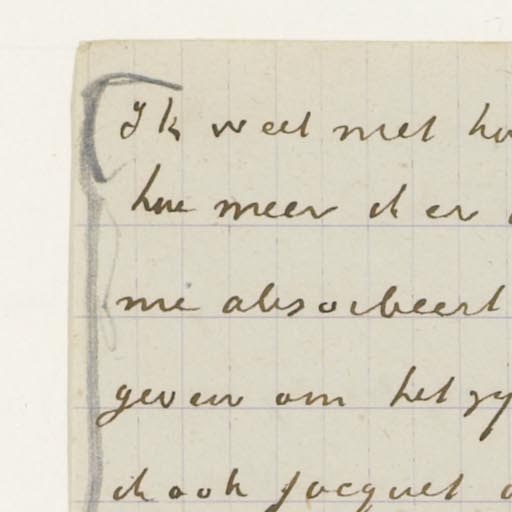 Ik weet niet
hoe meer ik er
me absorbeert
geven om het
ik ook Jacquet